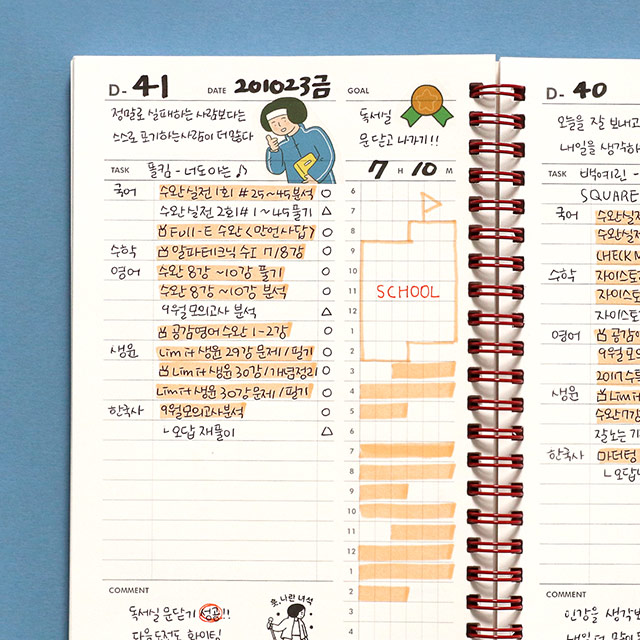 D- 41 DATE 201023금 GOAL
정말로 실패하는 사람보다는
스스로 포기하는 사람이 더 많다
독서실
문 닫고 나가기!!
7 H 10 M
TASK 폴킴 - 너도 아는 ♪
국어 수완 실전 1회 #25~45 분석 ○
수완 실전 2회 #1~45 풀기 △
Full-E 수완 <안언사답> ○
수학 알파테크닉 수I 7/8강 ○
영어 수완 8강 ~10강 풀기 ○
수완 8강 ~10강 분석 ○
9월 모의고사 분석 △
공감영어 수완 1-2강 ○
생윤 Limit 생윤 29강 문제/필기 ○
Limit 생윤 30강/개념정리 ○
Limit 생윤 30강 문제/필기 ○
한국사 9월 모의고사 분석 ○
ㄴ오답 재풀이 △
6
7
8
9
10
11
12
1
2
3
4
5
6
7
8
9
10
11
12
1
2
3
4
SCHOOL
COMMENT
독서실 문닫기 성공!!
다음 도전도 화이팅!
훗, 나란 녀석
D- 40
오늘을 잘 보내고
내일을 생각하
TASK 백예린 -
SQUARE
국어 수완실전
수완실전
CHECK M
수학 자이스토
자이스토
자이스토
영어 공감영
9월 모의
2017 수특
생윤 Limit
수완 7강
잘노는 기
한국사 마더텅
ㄴ오답
COMMENT
인강을 생각보